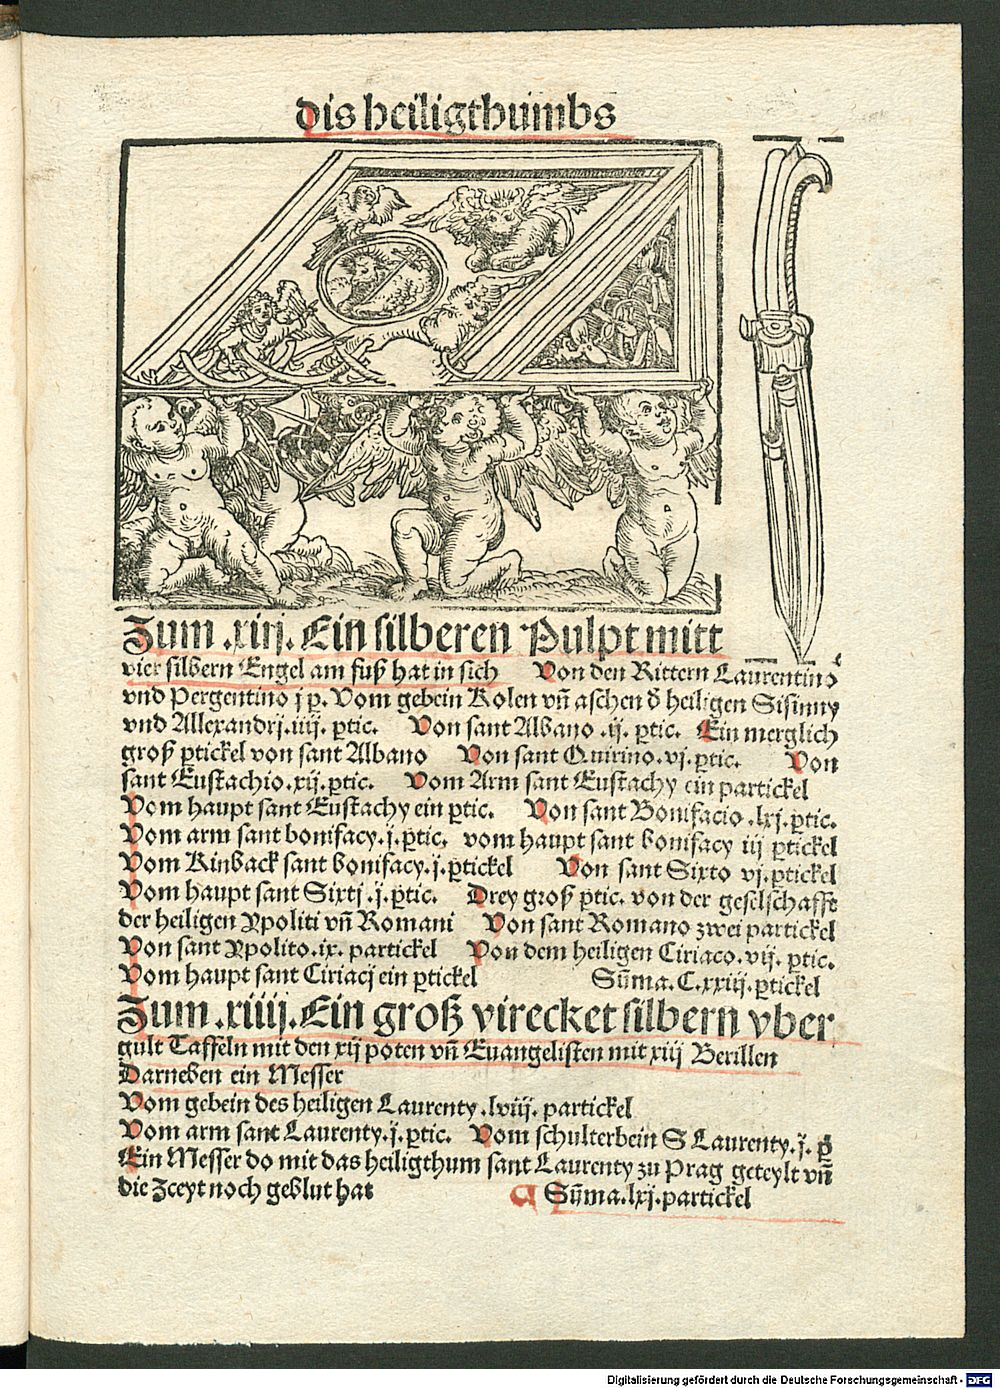 dis heiligthumbs
Zum .xiij. Ein silberen Pulpt mitt
vier silbern Engel am fuß hat in sich Von den Rittern Laurentino
vnd Pergentino j p̱. Vom gebein Kolen vñ aschen ď heiligen Sisinny
vnd Allexandrj.iiij. ꝑtic. Von sant Albano .ij. ꝑtic. Ein merglich
groß ꝑtickel von sant Albano Von sant Quirino.vj.ꝑtic. Von
sant Eustachio.xij.ꝑtic. Vom Arm sant Eustachy ein partickel
Vom haupt sant Eustachy ein ꝑtic. Von sant Bonifacio .lxj.ꝑtic.
Vom arm sant bonifacy.j.ꝑtic. vom haupt sant bonifacy iij ꝑtickel
Vom Kinback sant bonifacy.j.ꝑtickel Von sant Sixto vj.ꝑtickel
Vom haupt sant Sixtj.j.ꝑtic. Drey groß ꝑtic. von der geselschafft
der heiligen Ypoliti vñ Romani Von sant Romano zwei partickel
Von sant Ypolito.ix. partickel Von dem heiligen Ciriaco.vij. ꝑtic.
Vom haupt sant Ciriacj ein ꝑtickel Sum̃a.C.xxiij.ꝑtickel
Zum .xiiij.Ein groß virecket silbern vber
gult Taffeln mit den xij poten vñ Euangelisten mit xiij Berillen
Darneben ein Messer
Vom gebein des heiligen Laurenty.lviij. partickel
Vom arm sant Laurenty.j.ꝑtic. Vom schulterbein S Laurenty.j. ꝑ
Ein Messer do mit das heiligthum sant Laurenty zu Prag geteylt vñ
die Zceyt noch geblut hat Sum̃a.lxj.partickel
Digitalisierung gefördert durch die Deutsche Forschungsgemeinschaft - DFG